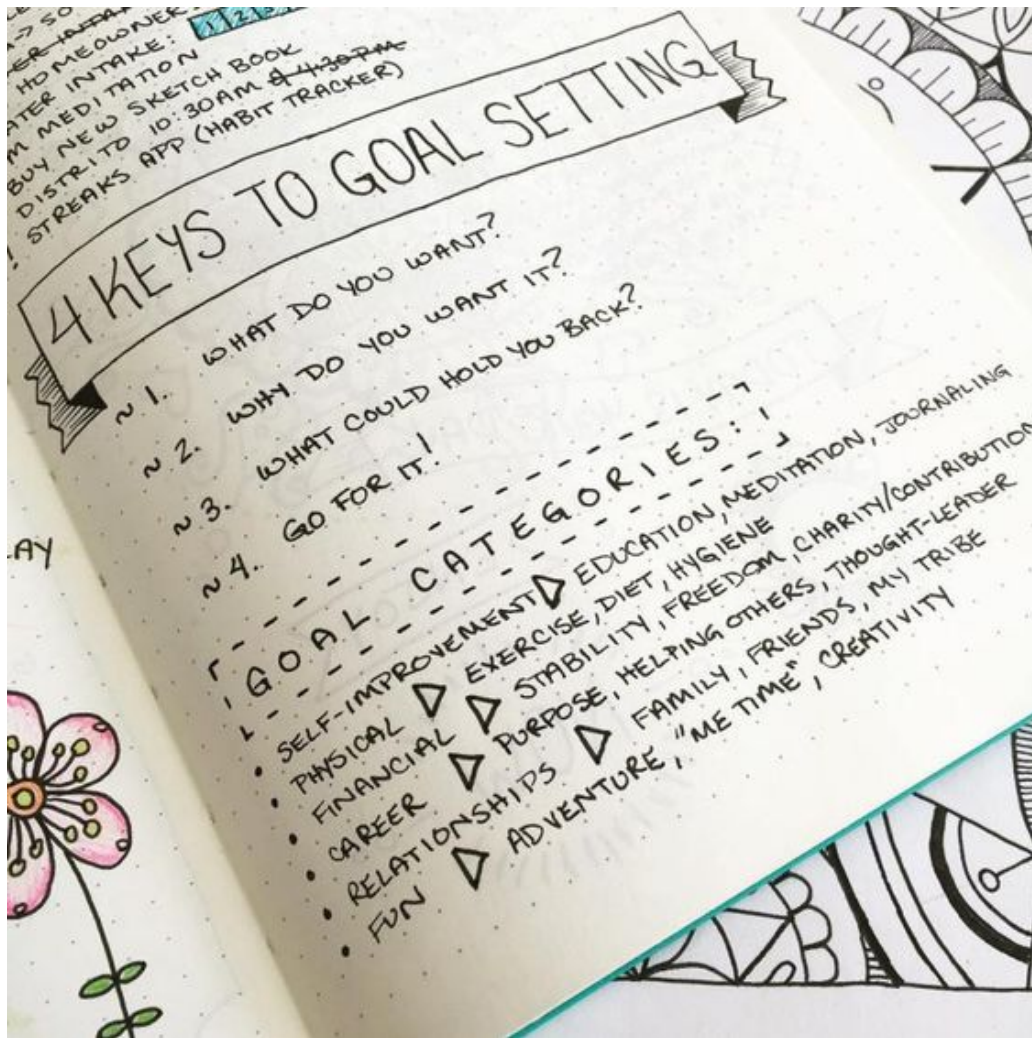 HOMEOWNER
INTAKE:
MEDITATION
BUY NEW SKETCH BOOK
DISTRITO 10:30AM & 4:30PM
STREAKS APP (HABIT TRACKER)
4 KEYS TO GOAL SETTING
~ 1. WHAT DO YOU WANT?
~ 2. WHY DO YOU WANT IT?
~ 3. WHAT COULD HOLD YOU BACK?
~ 4. GO FOR IT!
GOAL CATEGORIES:
• SELF-IMPROVEMENT ▷ EDUCATION, MEDITATION, JOURNALING
• PHYSICAL ▷ EXERCISE, DIET, HYGIENE
• FINANCIAL ▷ STABILITY, FREEDOM, CHARITY/CONTRIBUTION
• CAREER ▷ PURPOSE, HELPING OTHERS, THOUGHT-LEADER
• RELATIONSHIPS ▷ FAMILY, FRIENDS, MY TRIBE
• FUN ▷ ADVENTURE, "ME TIME", CREATIVITY